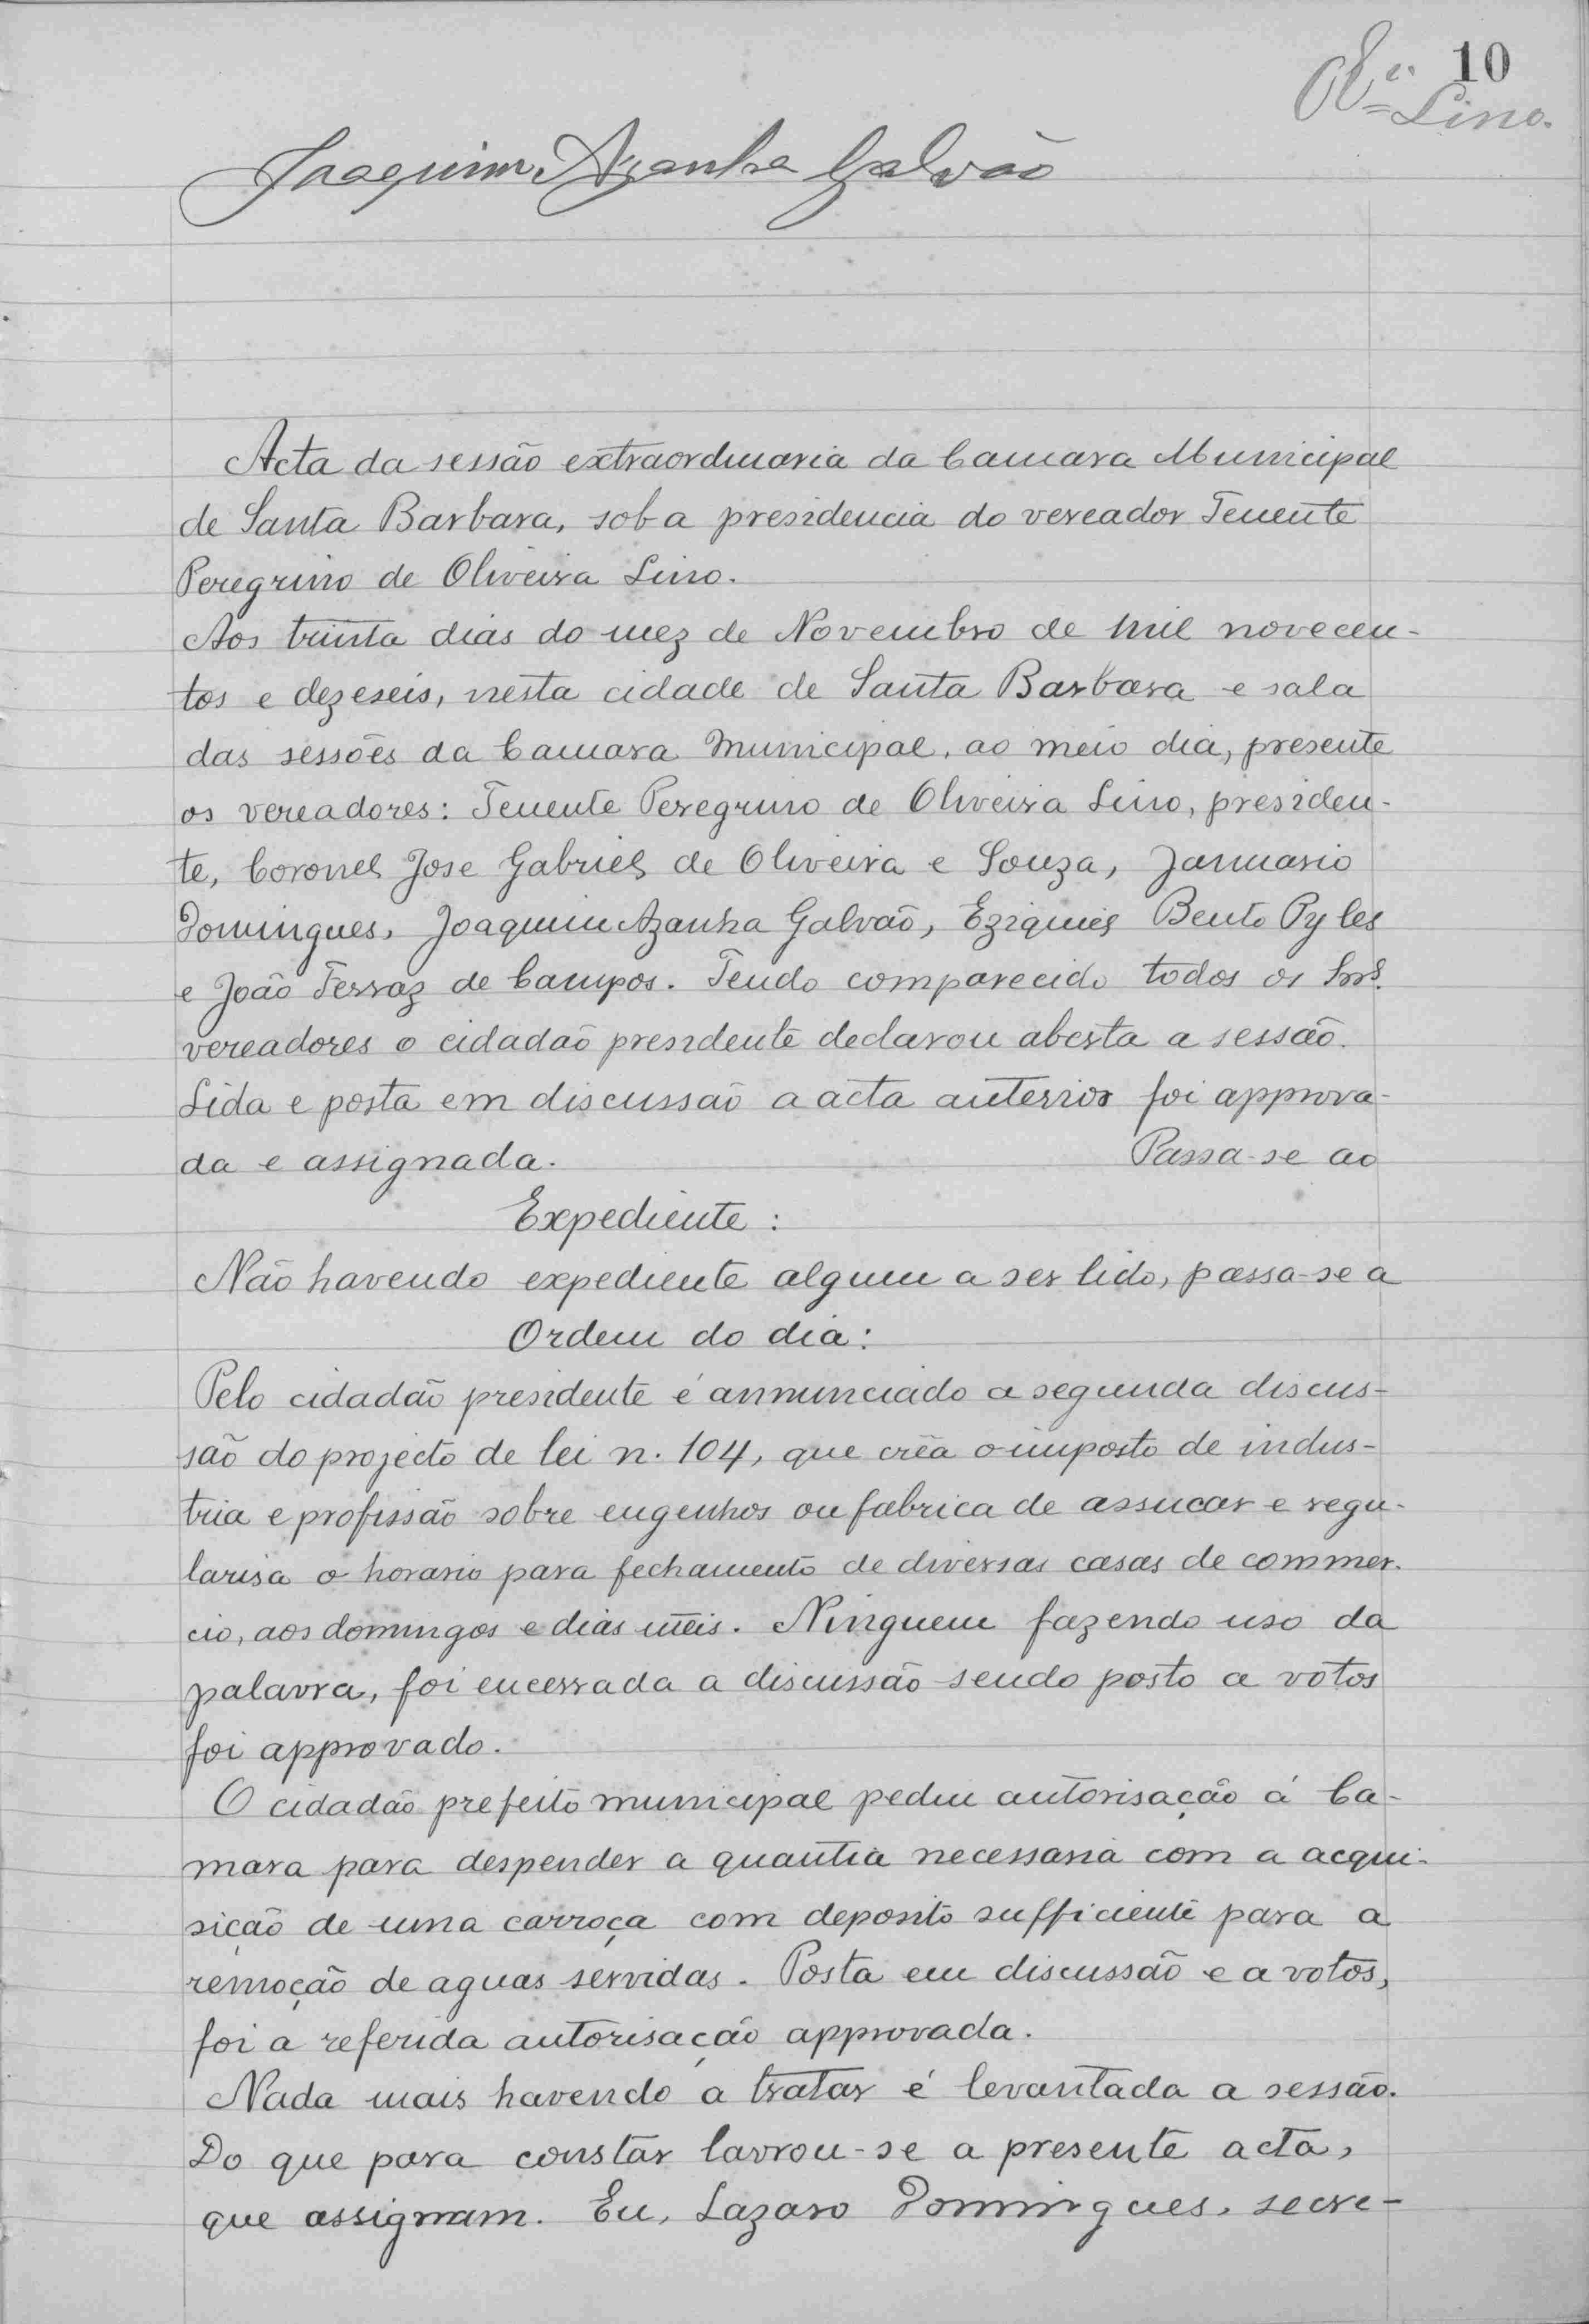 10
Lino.
Joaquim Azanha Galvão
Acta da sessão extraordinaria da Camara Municipal
de Santa Barbara, sob a presidencia do vereador Tenente
Peregrino de Oliveira Lino.
Aos trinta dias do mez de Novembro de mil novecen-
tos e dezeseis, nesta cidade de Santa Barbara e sala
das sessões da Camara Municipal, ao meio dia, presente
os vereadores: Tenente Peregrino de Oliveira Lino, presiden-
te, Coronel Jose Gabriel de Oliveira e Souza, Januario
Domingues, Joaquim Azanha Galvão, Eziquiel Bento Pyles
e João Ferraz de Campos. Tendo comparecido todos os Snrs.
vereadores o cidadão presidente declarou aberta a sessão.
Lida e posta em discussão a acta anterior foi approva-
da e assignada. Passa-se ao
Expediente:
Não havendo expediente algum a ser lido, passa-se a
Ordem do dia:
Pelo cidadão presidente é annunciado a segunda discus-
são do projecto de lei n. 104, que crêa o imposto de indus-
tria e profissão sobre engenhos ou fabrica de assucar e regu-
larisa o horario para fechamento de diversas casas de commer-
cio, aos domingos e dias uteis. Ninguem fazendo uso da
palavra, foi encerrada a discussão sendo posto a votos
foi approvado.
O cidadão prefeito municipal pediu autorisação á Ca-
mara para despender a quantia necessaria com a acqui-
sição de uma carroça com deposito sufficiente para a
remoção de aguas servidas. Posta em discussão e a votos,
foi a referida autorisação approvada.
Nada mais havendo a tratar é levantada a sessão.
Do que para constar lavrou-se a presente acta,
que assignam. Eu, Lazaro Domingues, secre-